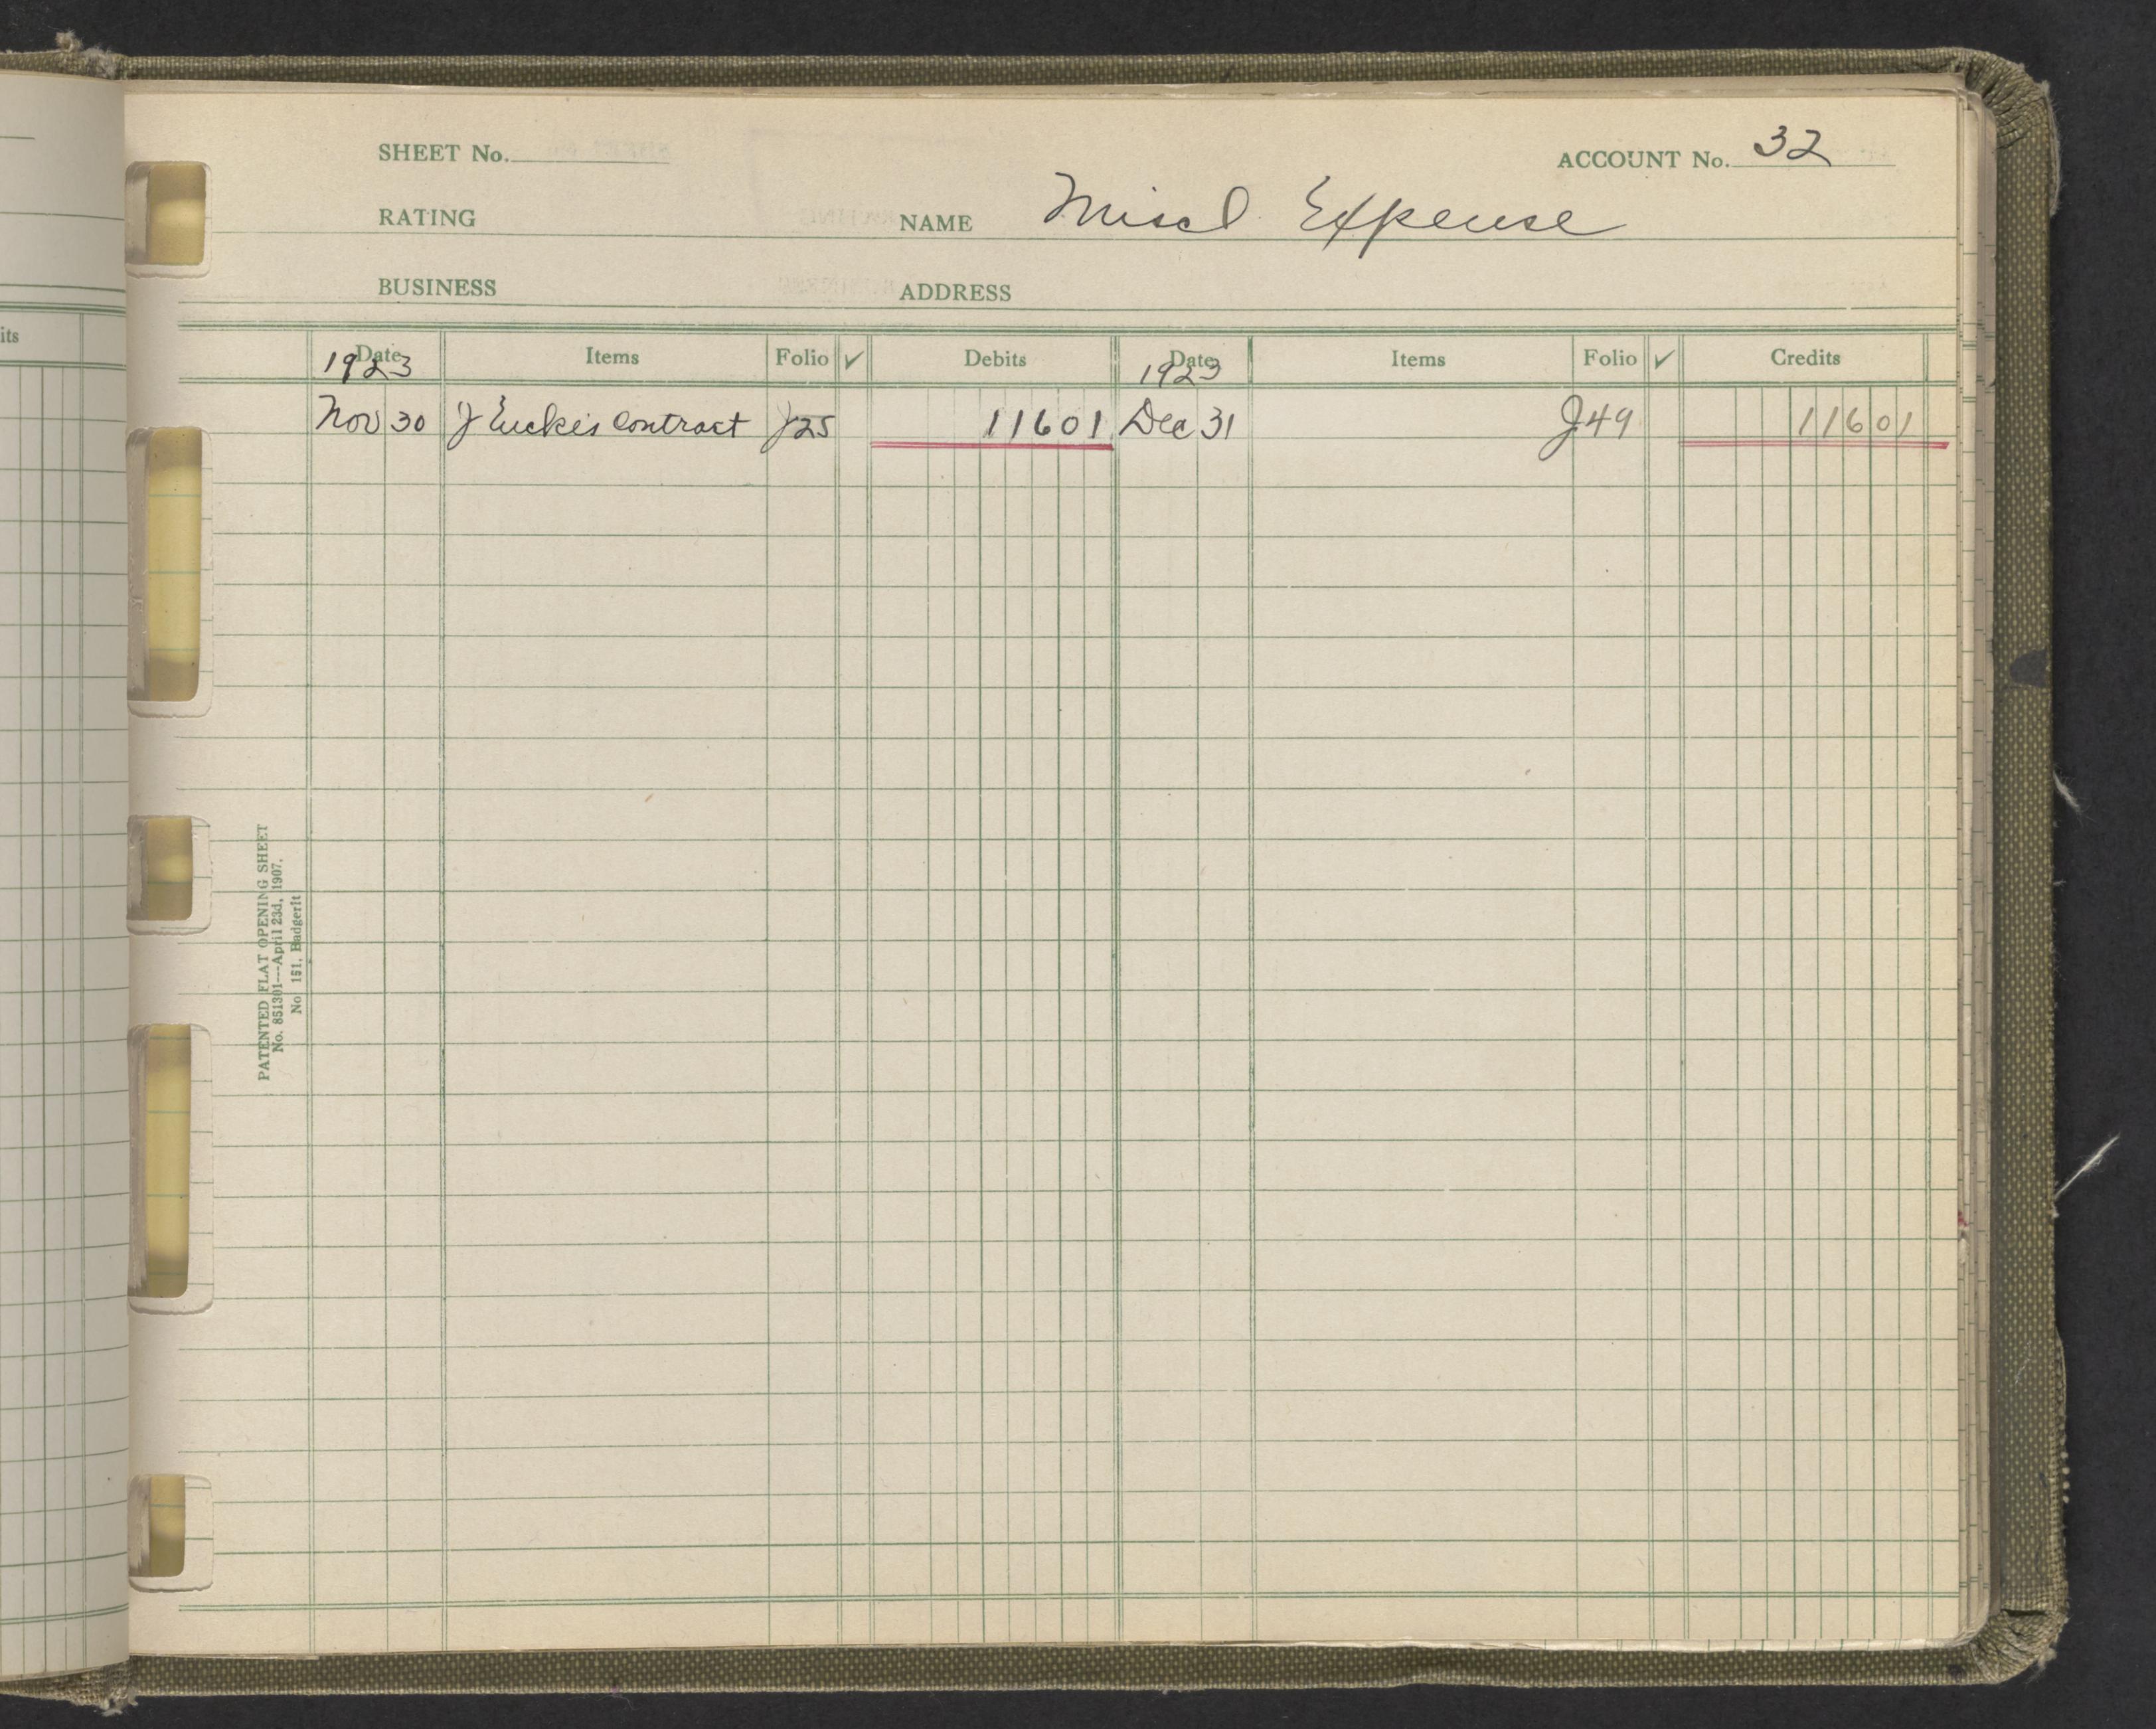 its
SHEET No. ACCOUNT No. 32
RATING NAME Miscl Expense
BUSINESS ADDRESS
Date Items Folio ✓ Debits Date Items Folio ✓ Credits
1923 1923
Nov 30 J contract J25 11601 Dec 31 J49 11601
PATENTED FLAT OPENING SHEET
No. 851301---April 23d, 1907.
No 151. Badgerit